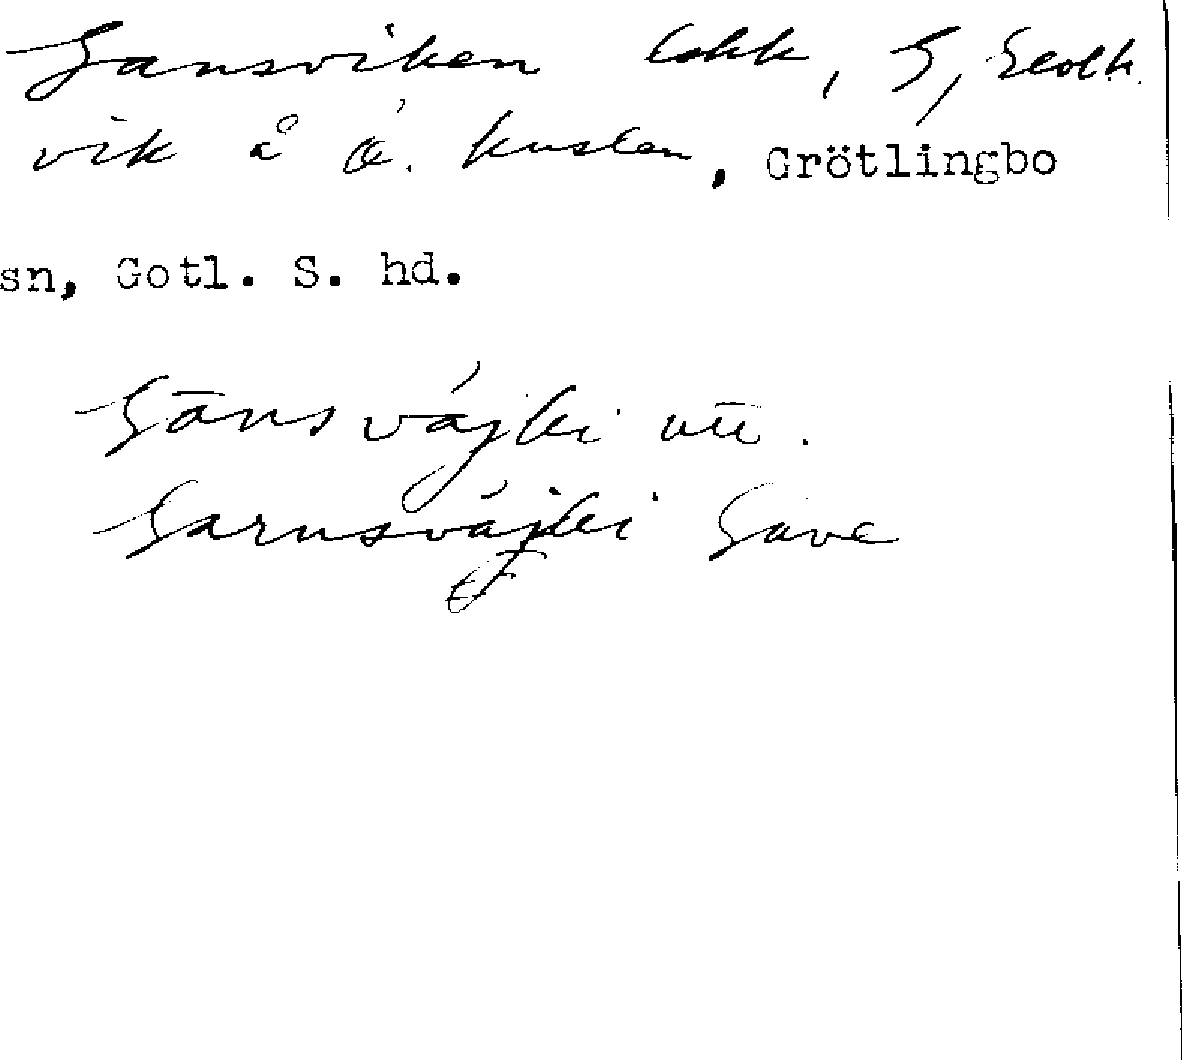 Gansviken Eokk, G, Geolk.
vik å ö. kusten, Grötlingbo
sn, Gotl. S. hd.
Gānsvájki utt.
Garnsvájki Säve